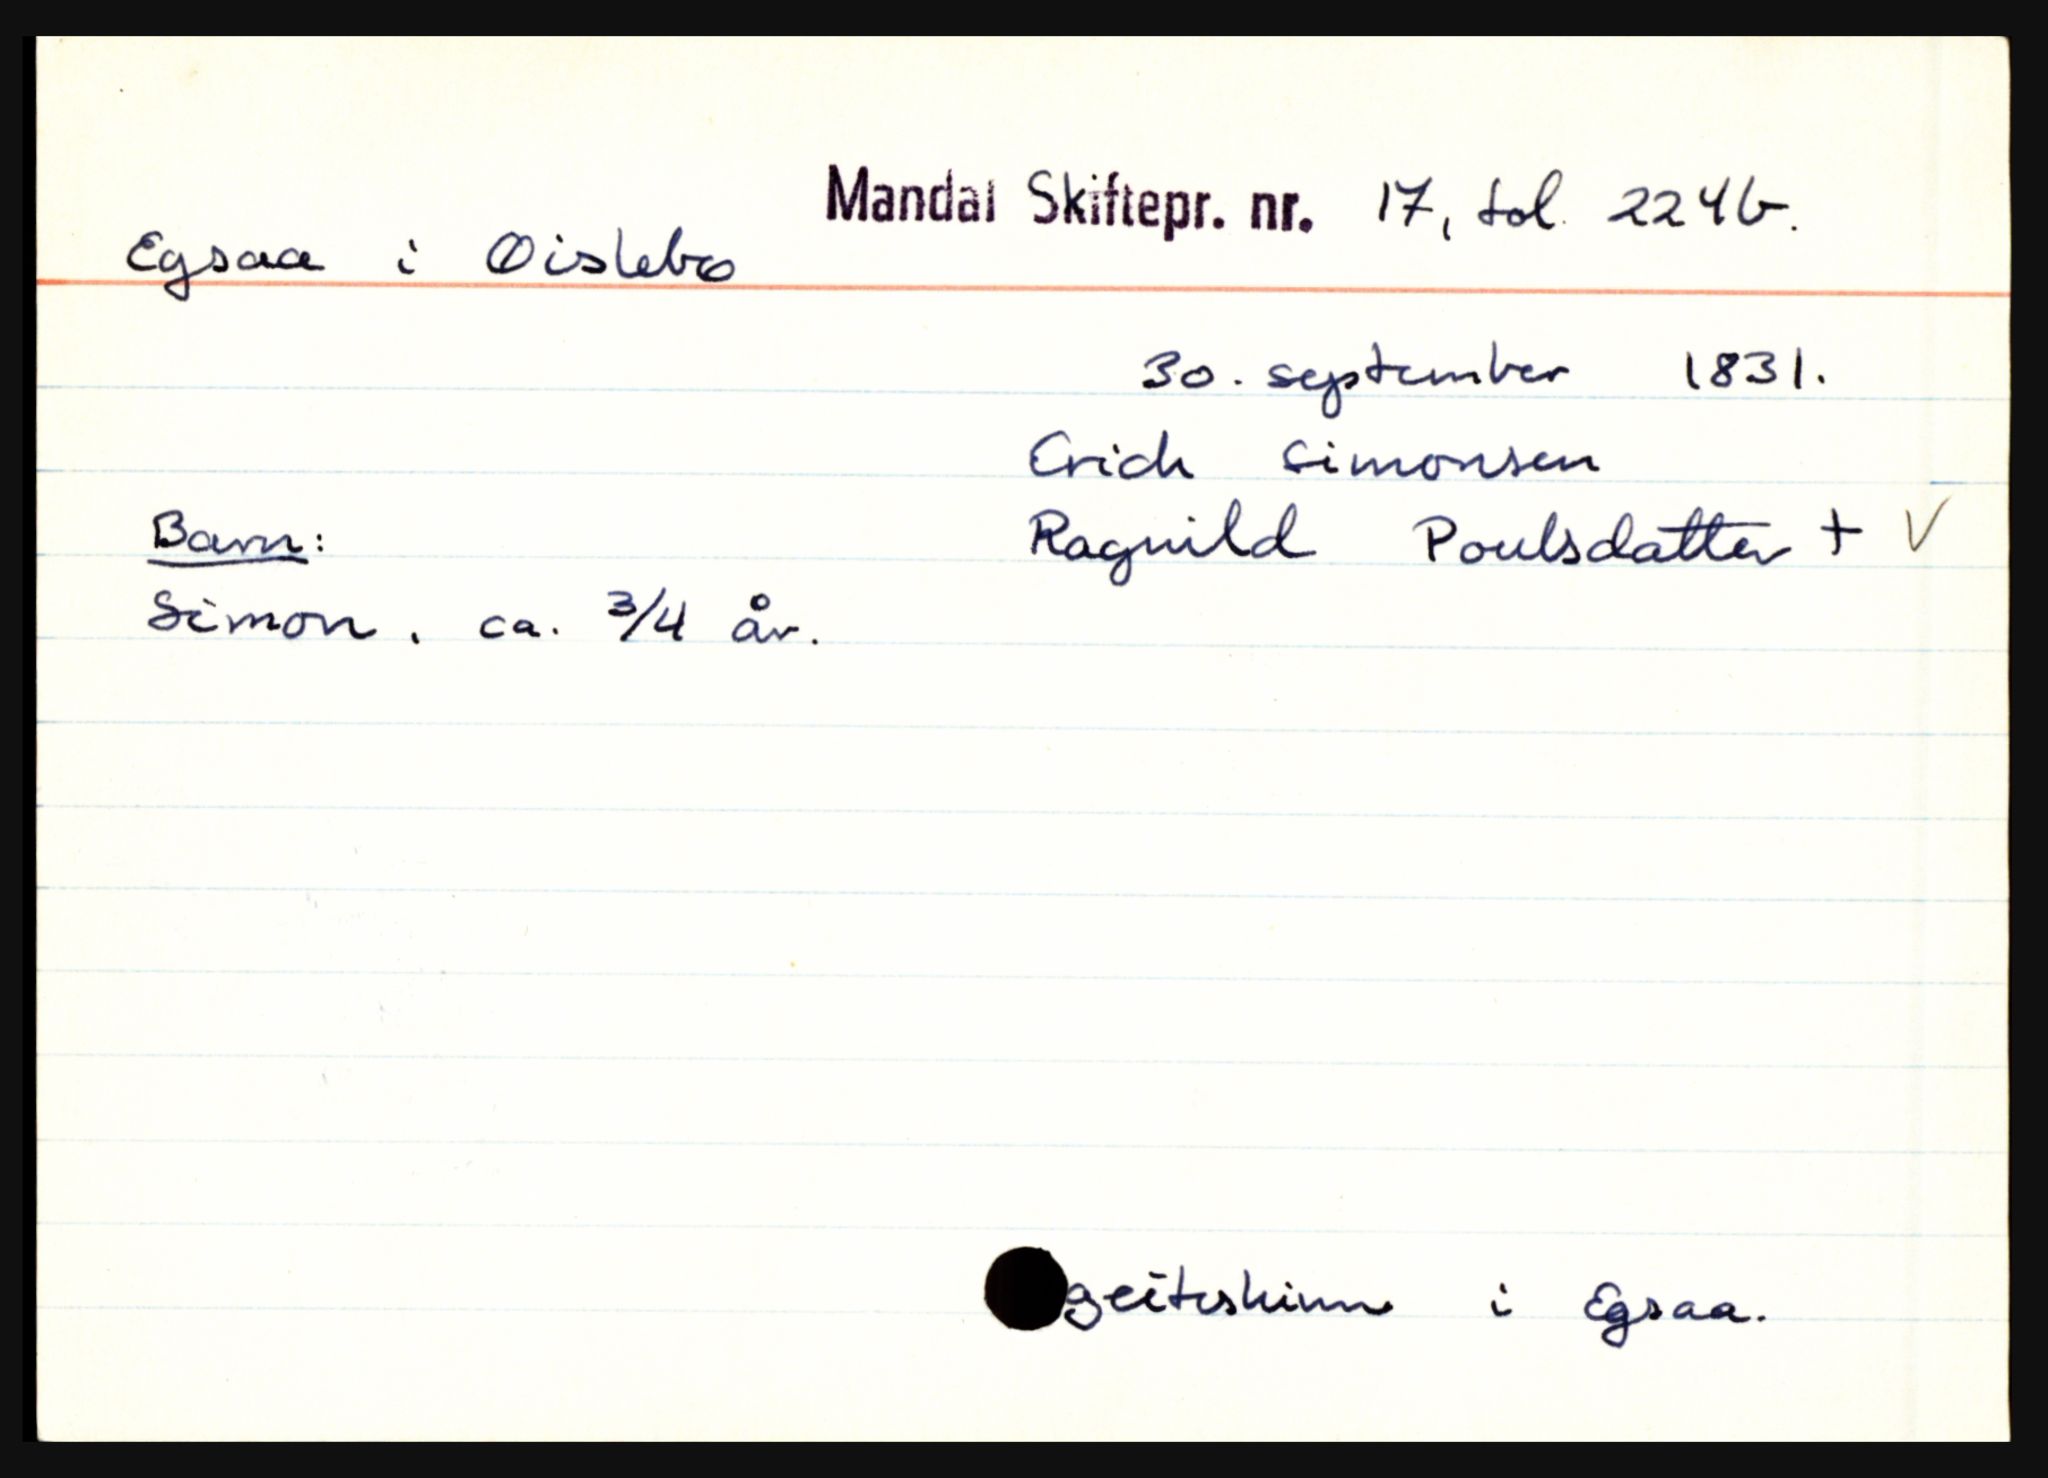 Mandal Skiftepr. nr. 17, fol. 224b.
Egsaa i Øislebø
30. september 1831.
Erich Simonsen
Ragnild Poulsdatter + V
Barn:
Simon. ca. 3/4 år.
geiteskinn i Egsaa.